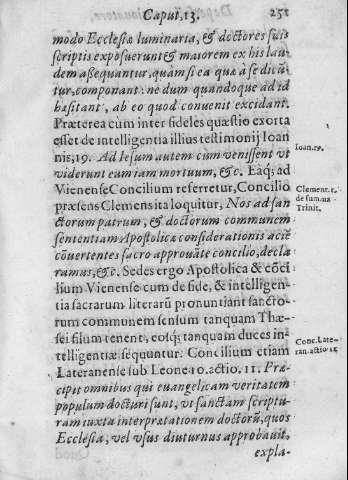 Caput. 13. 251
modo Ecclesiæ luminaria, & doctores suis
scriptis exposuerunt & maiorem ex his lau-
dem aßequantur, quam si ea quæ à se dicũ-
tur, componant: ne dum quandoque ad id
hæsitant, ab eo quod convenit excidant.
Præterea cùm inter fideles quæstio exorta
esset de intelligentia illius testimonij Ioan
nis, 19. Ad Iesum autem cùm venissent vt
Ioan. 19.
viderunt eum iam mortuum, &c. Eaq; ad
Vienense Concilium referretur, Concilio
præsens Clemens ita loquitur, Nos ad san
Clement. 1.
de summa
Trinit.
ctorum patrum, & doctorum communem
sententiam Apostolicæ considerationis aciẽ
cõuertentes sacro approuãte concilio, decla
ramus, &c. Sedes ergo Apostolica & cõci
lium Vienense cum de fide, & intelligen-
tia sacrarum literarũ pronuntiant sancto-
rum communem sensum tanquam Thæ-
sei filum tenent, eosq; tanquam duces in-
telligentiæ sequuntur. Concilium etiam
Conc. Late-
ran. actio. 11
Lateranense sub Leone. 10. actio. 11. Præ-
cipit omnibus qui euangelicam veritatem
populum docturi sunt, vt sanctam scriptu-
ram iuxta interpretationem doctorũ, quos
Ecclesia, vel vsus diuturnus approbauit,
expla-